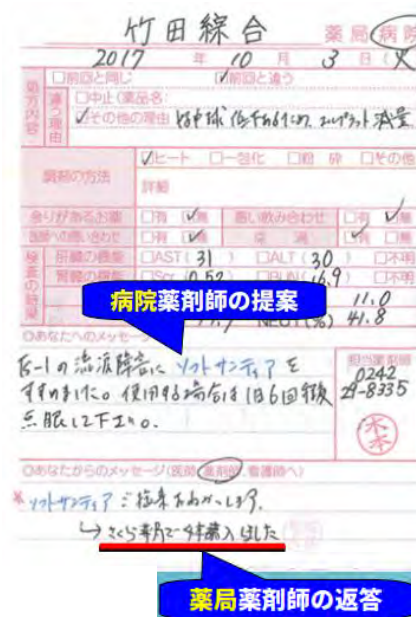 竹田綜合 薬局病院
2017 年 10 月 3 日(火
処方内容 □前回と同じ ☑前回と違う
違う理由 □中止(薬品名:
☑その他の理由 好中球低下あるため、エルプラット減量
調剤の方法 ☑ヒート □一包化 □粉砕 □その他
詳細
余りがあるお薬 □有 ☑無 悪い飲み合わせ □有 ☑無
医師への問い合わせ □有 ☑無 ☑有 □無
検査の結果 肝臓の機能 □AST( 31 ) □ALT( 30 ) □不明
腎臓の機能 □Scr( 0.52 □BUN( 16.9 □不明
11.0
病院薬剤師の提案
NEUT(%) 41.8
○あなたへのメッセージ
担当薬剤師
S-1の流涙障害に ソフトサンティア を
0242
すすめました。使用する場合は1日6回程度
29-8335
点眼して下さい。
○あなたからのメッセージ(医師、薬剤師、看護師へ)
*ソフトサンティア ご指導お願いします。
↳さくら薬局で購入しました
薬局薬剤師の返答